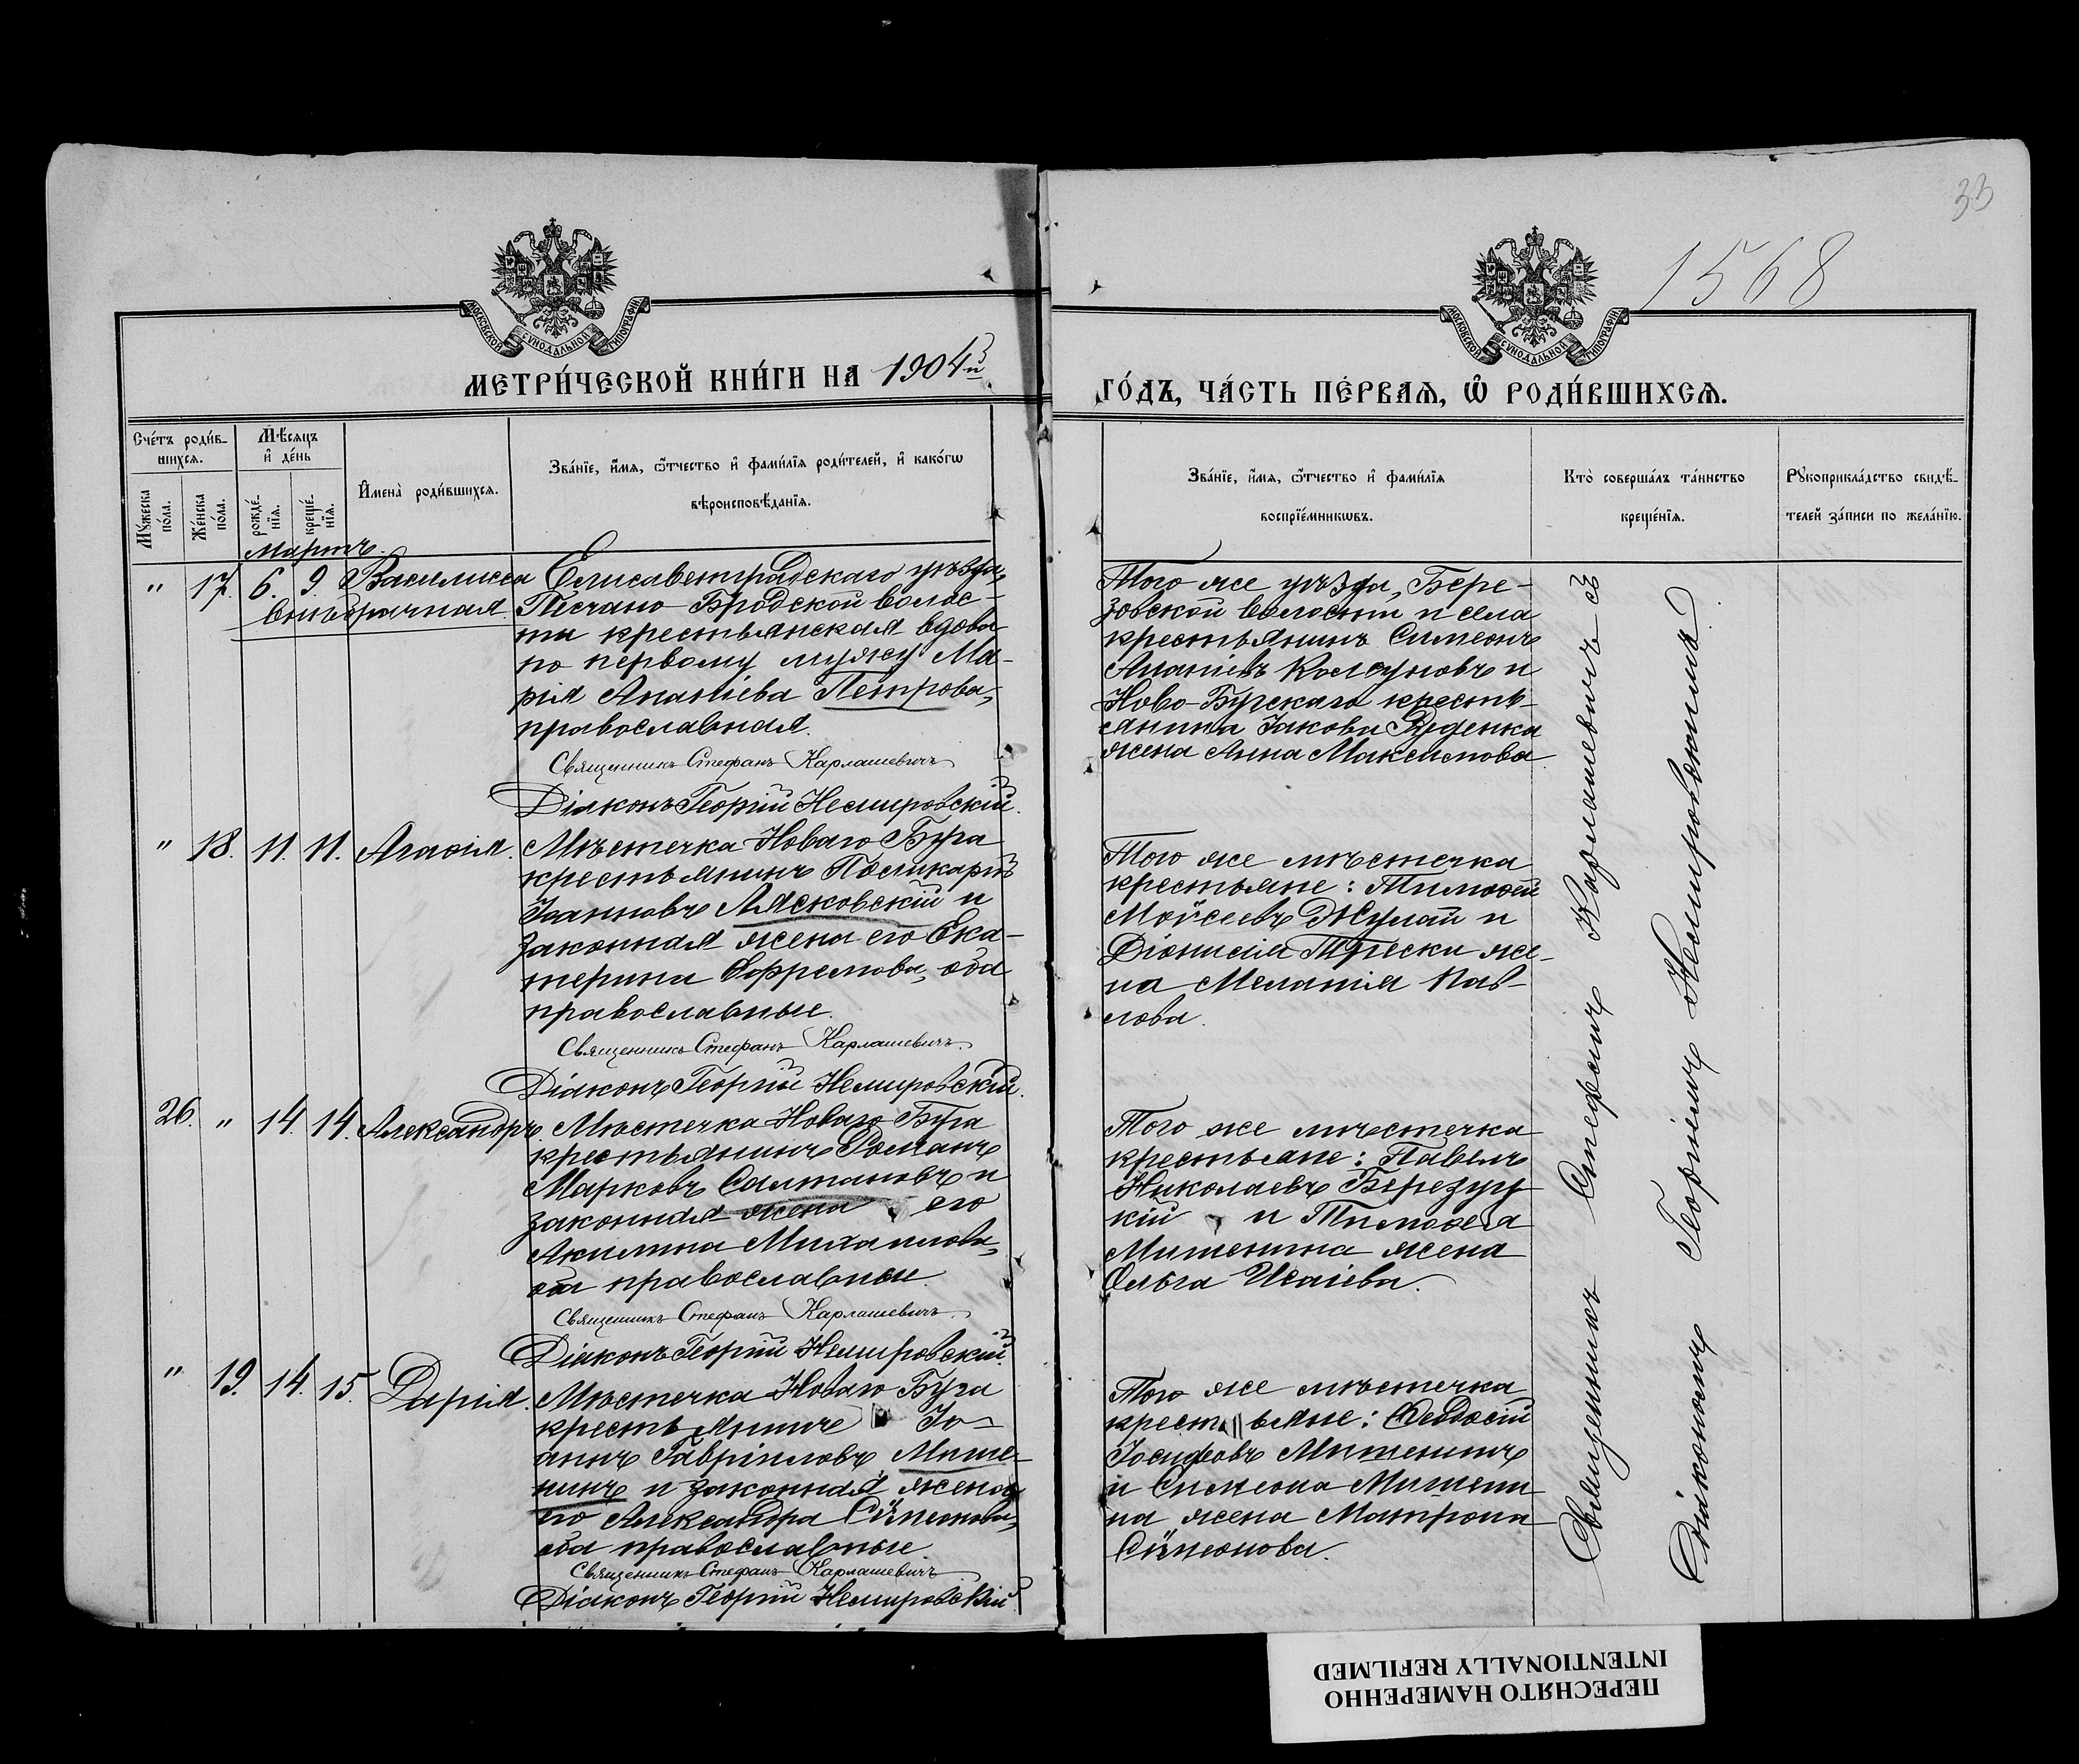 33
1568
МОСКОВСКОЙ СѴНОДАЛЬНОЙ ТИПОГРАФІИ
МОСКОВСКОЙ СѴНОДАЛЬНОЙ ТИПОГРАФІИ
МЕТРИ́ЧЕСКОЙ КНИ́ГИ НА 1904й
ГО́ДЪ, ЧА́СТЬ ПЕ́РВАѦ, Ѡ҆ РОДИ́ВШИХСѦ.
Сче́тъ роди́в-
шихсѧ.
Мѣ́сѧцъ
и҆ де́нь
Мꙋ́жеска
по́ла.
Же́нска
по́ла.
рожде́-
нїѧ.
креще́-
нїѧ.
И҆мена̀ роди́вшихсѧ.
Зва́нїе, и҆́мѧ, ѻ҆́тчество и҆ фами́лїѧ роди́телей, и҆ како́гѡ
вѣроисповѣ́данїѧ.
Зва́нїе, и҆́мѧ, ѻ҆́тчество и҆ фами́лїѧ
воспрїе́мникѡвъ.
Кто̀ соверша́лъ та́инство
креще́нїѧ.
Рꙋкоприкла́дство свидѣ́-
телей за́писи по жела́нїю.
Мартъ.
" 17. 6. 9. Василисса
внѣбрачная.
Елисаветградскаго уѣзда,
Песчано-Бродской волос-
ти крестьянская вдова
по первому мужу Ма-
рія Ананіева Петрова,
православная.
Священникъ Стефанъ Карлашевичъ
Діаконъ Георгій Немировскій.
Того же уѣзда, Бере-
зовской волости и села
крестьянинъ Симеонъ
Ананіевъ Колсуновъ и
Ново-Бугскаго кресть-
янина Іакова Руденка
жена Анна Максимова
" 18. 11. 11. Агаѳія.
Мѣстечка Новаго Буга
крестьянинъ Поликарпъ
Іоанновъ Лясковскій и
законная жена его Ека-
терина Ефремова, оба
православные.
Священникъ Стефанъ Карлашевичъ.
Діаконъ Георгій Немировскій.
Того же мѣстечка
крестьяне: Тимоѳей
Моѵсеевъ Жулай и
Діонисія Трески же-
на Меланія Пав-
лова.
26. " 14. 14. Александръ.
Мѣстечка Новаго Буга
крестьянинъ Романъ
Марковъ Салтановъ и
законная жена его
Акилина Михаилова,
оба православные.
Священникъ Стефанъ Карлашевичъ.
Діаконъ Георгій Немировскій.
Того же мѣстечка
крестьяне: Павелъ
Николаевъ Березуц
кій и Тимоѳея
Мишенина жена
Ольга Исаіева.
" 19. 14. 15. Дарія.
Мѣстечка Новаго Буга
крестьянинъ Іо-
аннъ Гавріиловъ Мише-
нинъ и законная жена
его Александра Сѵмеонова,
оба православные.
Священникъ Стефанъ Карлашевичъ
Діаконъ Георгій Немировскій
Того же мѣстечка
крестьяне: Ѳеодосій
Іосифовъ Мишенинъ
и Симеона Мишени
на жена Матрона
Сѵмеонова.
Священникъ Стефанъ Карлашевичъ съ
Діакономъ Георгіемъ Немировскимъ.
ПЕРЕСНЯТО НАМЕРЕННО
INTENTIONALLY REFILMED